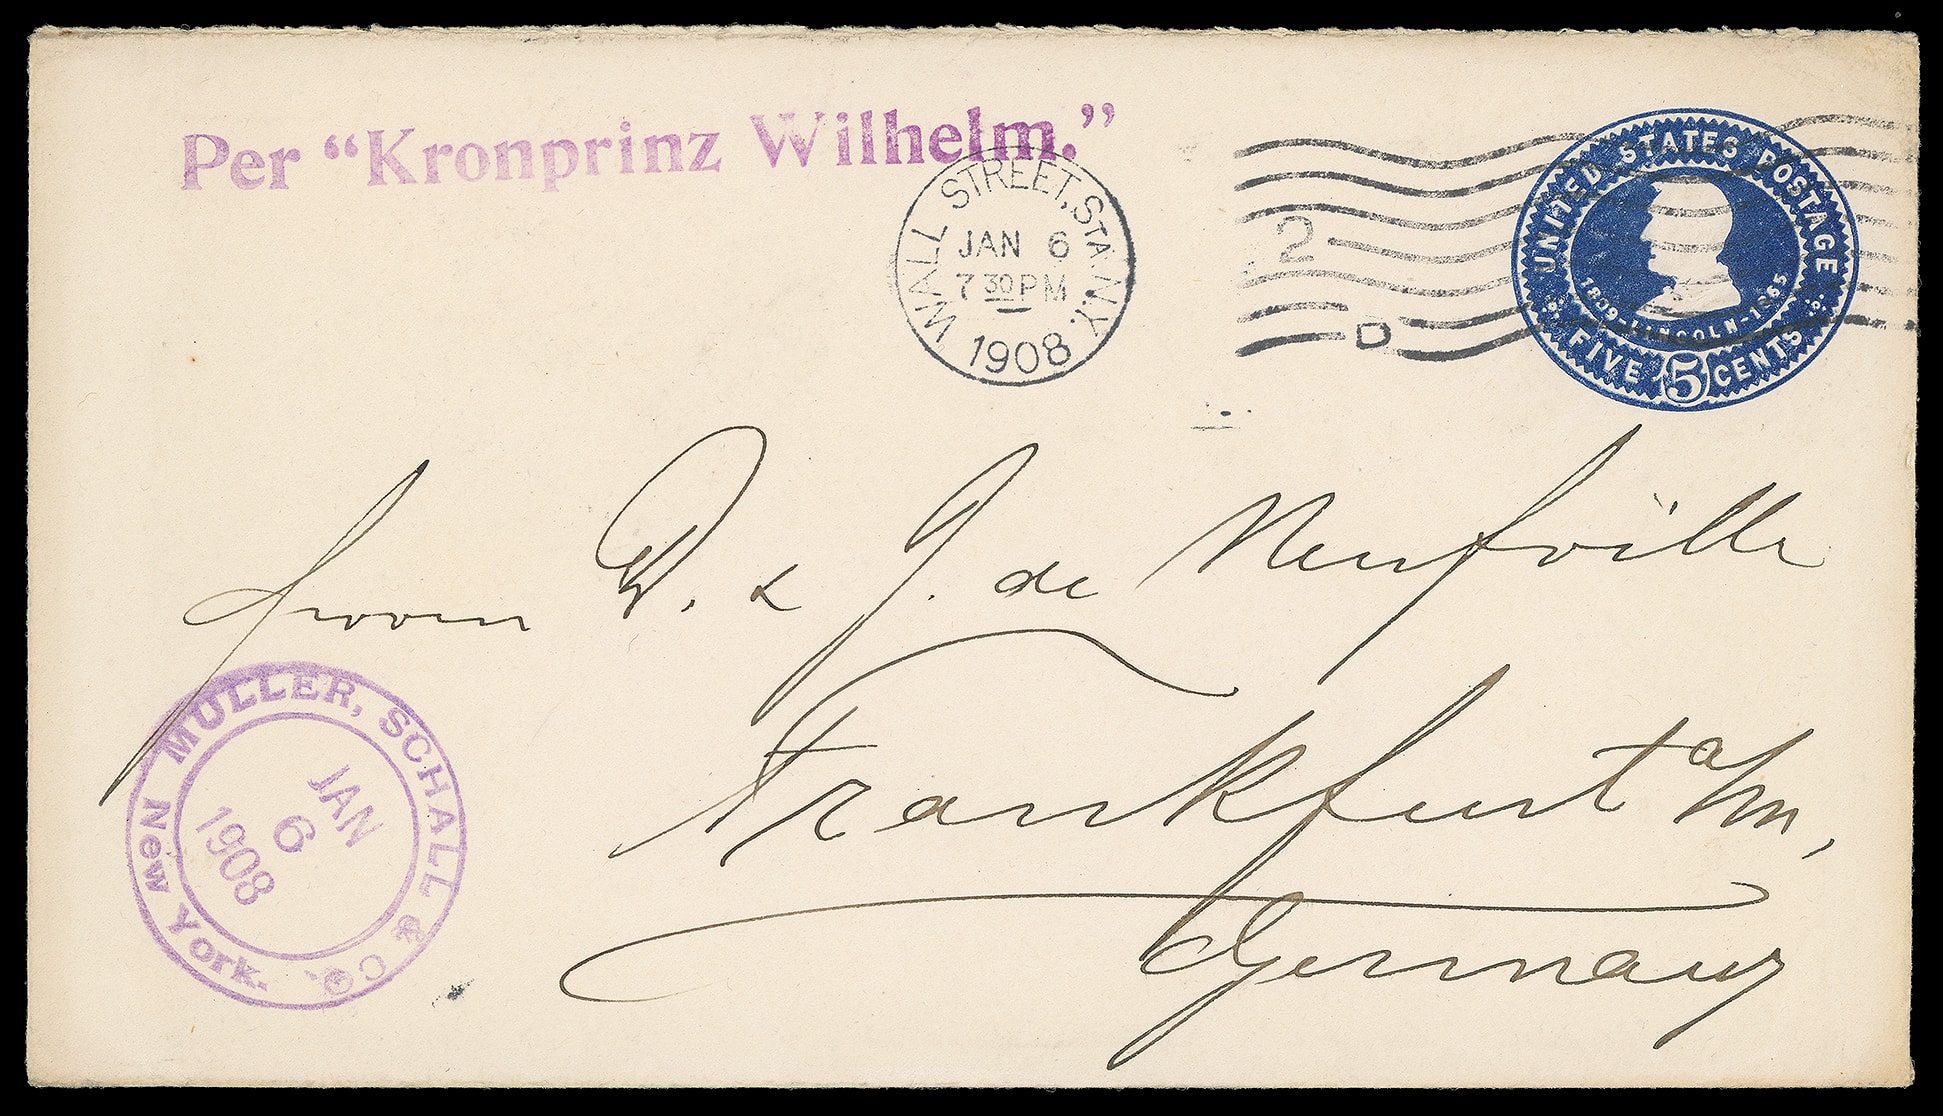 Per “Kronprinz Wilhelm.”
WALL STREET, STA. N.Y.
JAN 6
7 30 PM
1908
2
D
UNITED STATES POSTAGE
1809-LINCOLN-1865
FIVE 5 CENTS
D. & J. de Neufville
Frankfurt a/m,
Germany
MULLER, SCHALL & CO.
New York.
JAN
6
1908